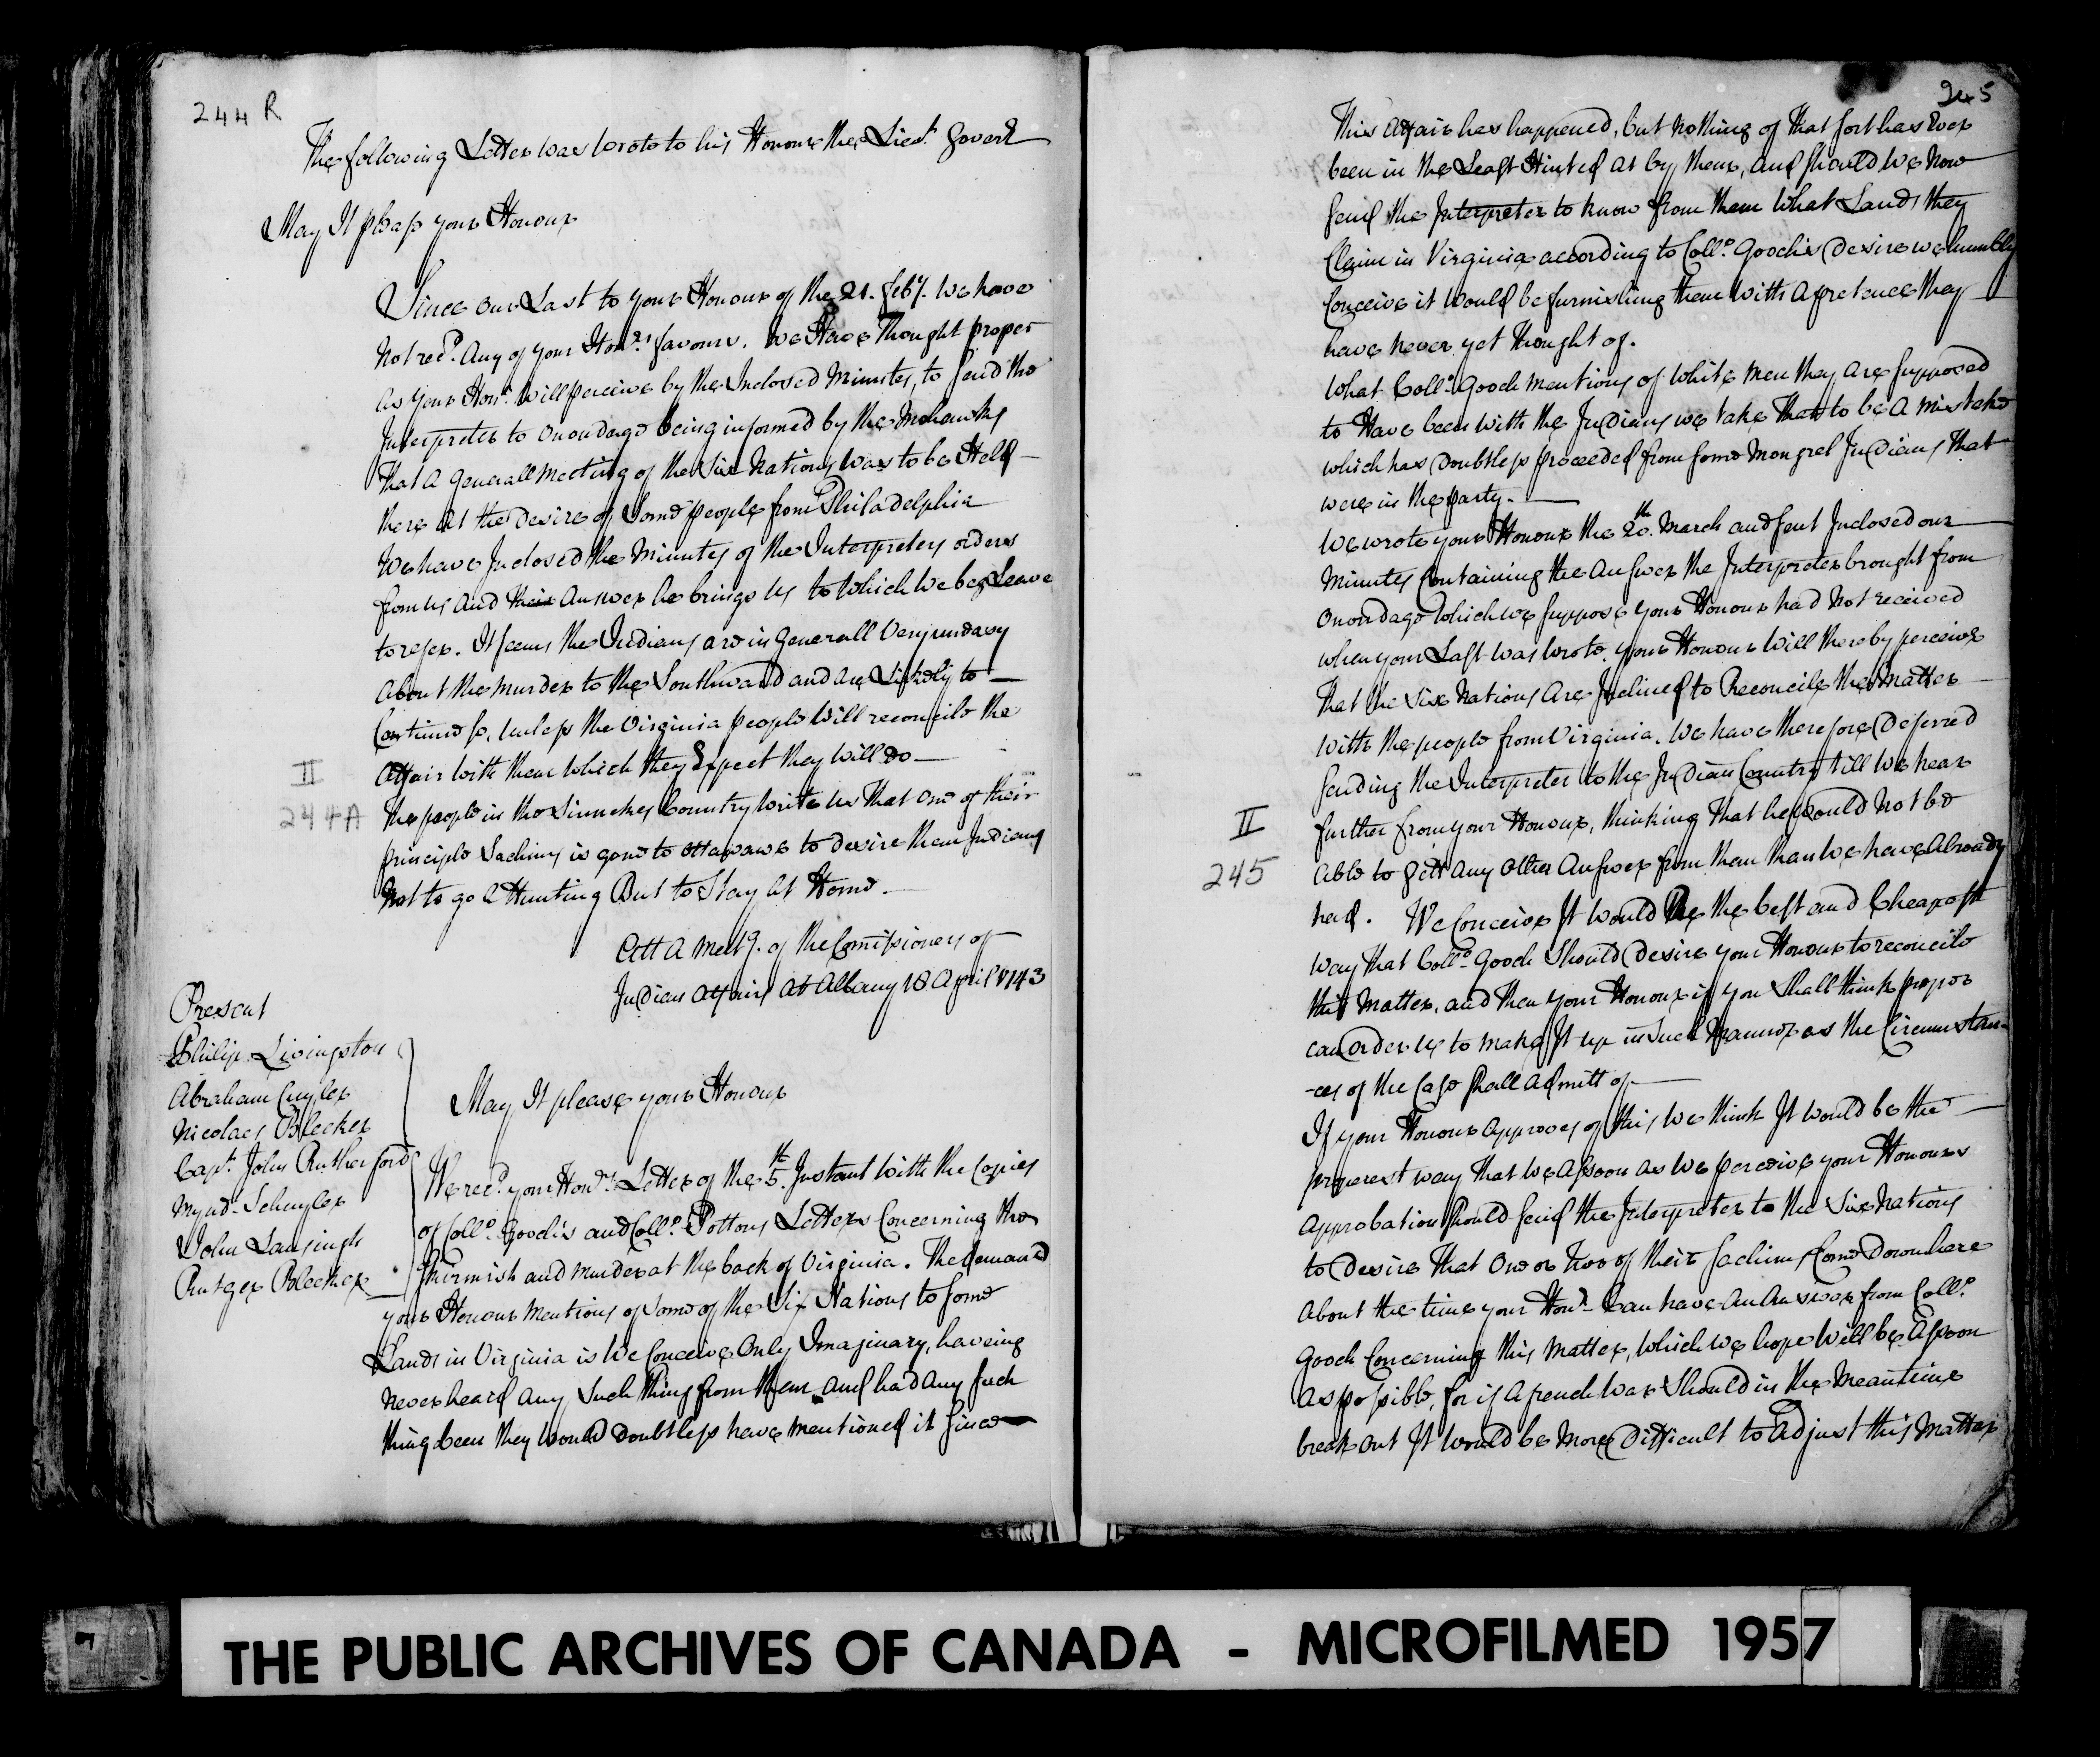 244 R
The following Letter was wrote to his Honour the Lieut. Govern.r
May It pleass your Honour
Since our Last to your Honour of the 21. feby. we have
Not rec.d Any of your Hon.rs favours. We Have Thought proper
as your Hon.r will perceive by the Inclosed Minutes, to send the
Interpreter to onondago being informed by the Mohawks
That a Generall meeting of the Six Nations was to be Held
there at the desire of Some people from Philadelphia
We have Inclosed the Minutes of the Interpreters orders
from us and their answer he brings us to which we beg Leave
to refer. It seems the Indians are in Generall Very uneasy
about the murder to the Southward and are Likely to
Continue so, unless the Virginia people will reconcile the
affair with them which they Expect they will do
II
244A
The people in the Sinnekes Country write us That one of their
principle Sachims is gone to ottawawa to desire them Indians
Not to go a Hunting But to Stay at Home.
Att A Meet.g of the Comissioners of
Indian affairs at Albany 18 April 1743
Present
Philip Livingston
Abraham Cuyler
Nicolaes Bleeker
Cap.t John Rutherford
Mynd.t Schuyler
John Lansingh
Rutger Bleeker
May It please your Honour
We rec.d your Hon.rs Letter of the 5.th Instant with the Copies
of Coll.o Gooch's and Coll.o Pattons Letters Concerning the
skirmish and murder at the back of Virginia. The demand
your Honour mentions of some of the Six Nations to some
Lands in Virginia is we Conceive Only Imaginary, haveing
never heard any such thing from them and had any such
thing been they would doubtless have mentioned it since
245
This affair has happened, but nothing of that sort has ever
been in the Least Hinted at by them, and should we now
send the Interpreter to know from them what Lands they
Claim in Virginia according to Coll.o Gooch's desire we humbly
Conceive it would be furnishing them with a pretence they
have never yet thought of.
What Coll.o Gooch mentions of white men they are supposed
to Have been with the Indians we take that to be a mistake
which has doubtless proceeded from some mongrel Indians that
were in the party.
We wrote your Honour the 20.th March and sent Inclosed our
Minutes Containing the answer the Interpreter brought from
onondago which we suppose your Honour had not received
when your Last was wrote. your Honour will thereby perceive
That the Six Nations are Inclined to Reconcile the Matter
with the people from Virginia. We have therefore deferred
sending the Interpreter to the Indian Country till we hear
II
245
further from your Honour, thinking That he would not be
able to gett any other answer from them than we have already
had. We Conceive It would Be the best and Cheapest
way that Coll.o Gooch should desire your Honour to reconcile
this matter, and then your Honour if you shall think proper
can order us to make It up in such manner as the Circumstan-
-ces of the Case shall admitt of
If your Honour approves of this we think It would be the
properest way that we assoon as we perceive your Honours
approbation should send the Interpreter to the Six Nations
to desire That one or two of their sachims come down here
about the time your Hon.r Can have an answer from Coll.o
Gooch Concerning this Matter, which we hope will be assoon
as possible, for if a french war should in the meantime
break out It would be more difficult to adjust this Matter
THE PUBLIC ARCHIVES OF CANADA - MICROFILMED 1957